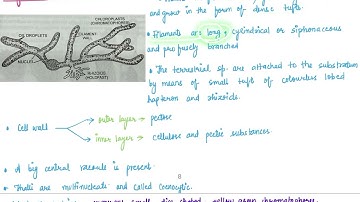 and grow in the form of dense tufts.
CHLOROPLASTS
(CHROMATOPHORE)
OIL DROPLETS
FILAMENT
WALL
NUCLEI
RHIZOIDS
(HOLDFAST)
• Filaments are long, cylindrical or siphonaceous
and profusely branched
• The terrestrial sp. are attached to the substratum
by means of small tuft of colourless lobed
hapteron and rhizoids.
• Cell wall
outer layer → pectose
inner layer → cellulose and pectic substances
• A big central vacuole is present.
8
• Thalli are multinucleate and called Coenocytic.
small disc shaped, yellow green chromatophores.